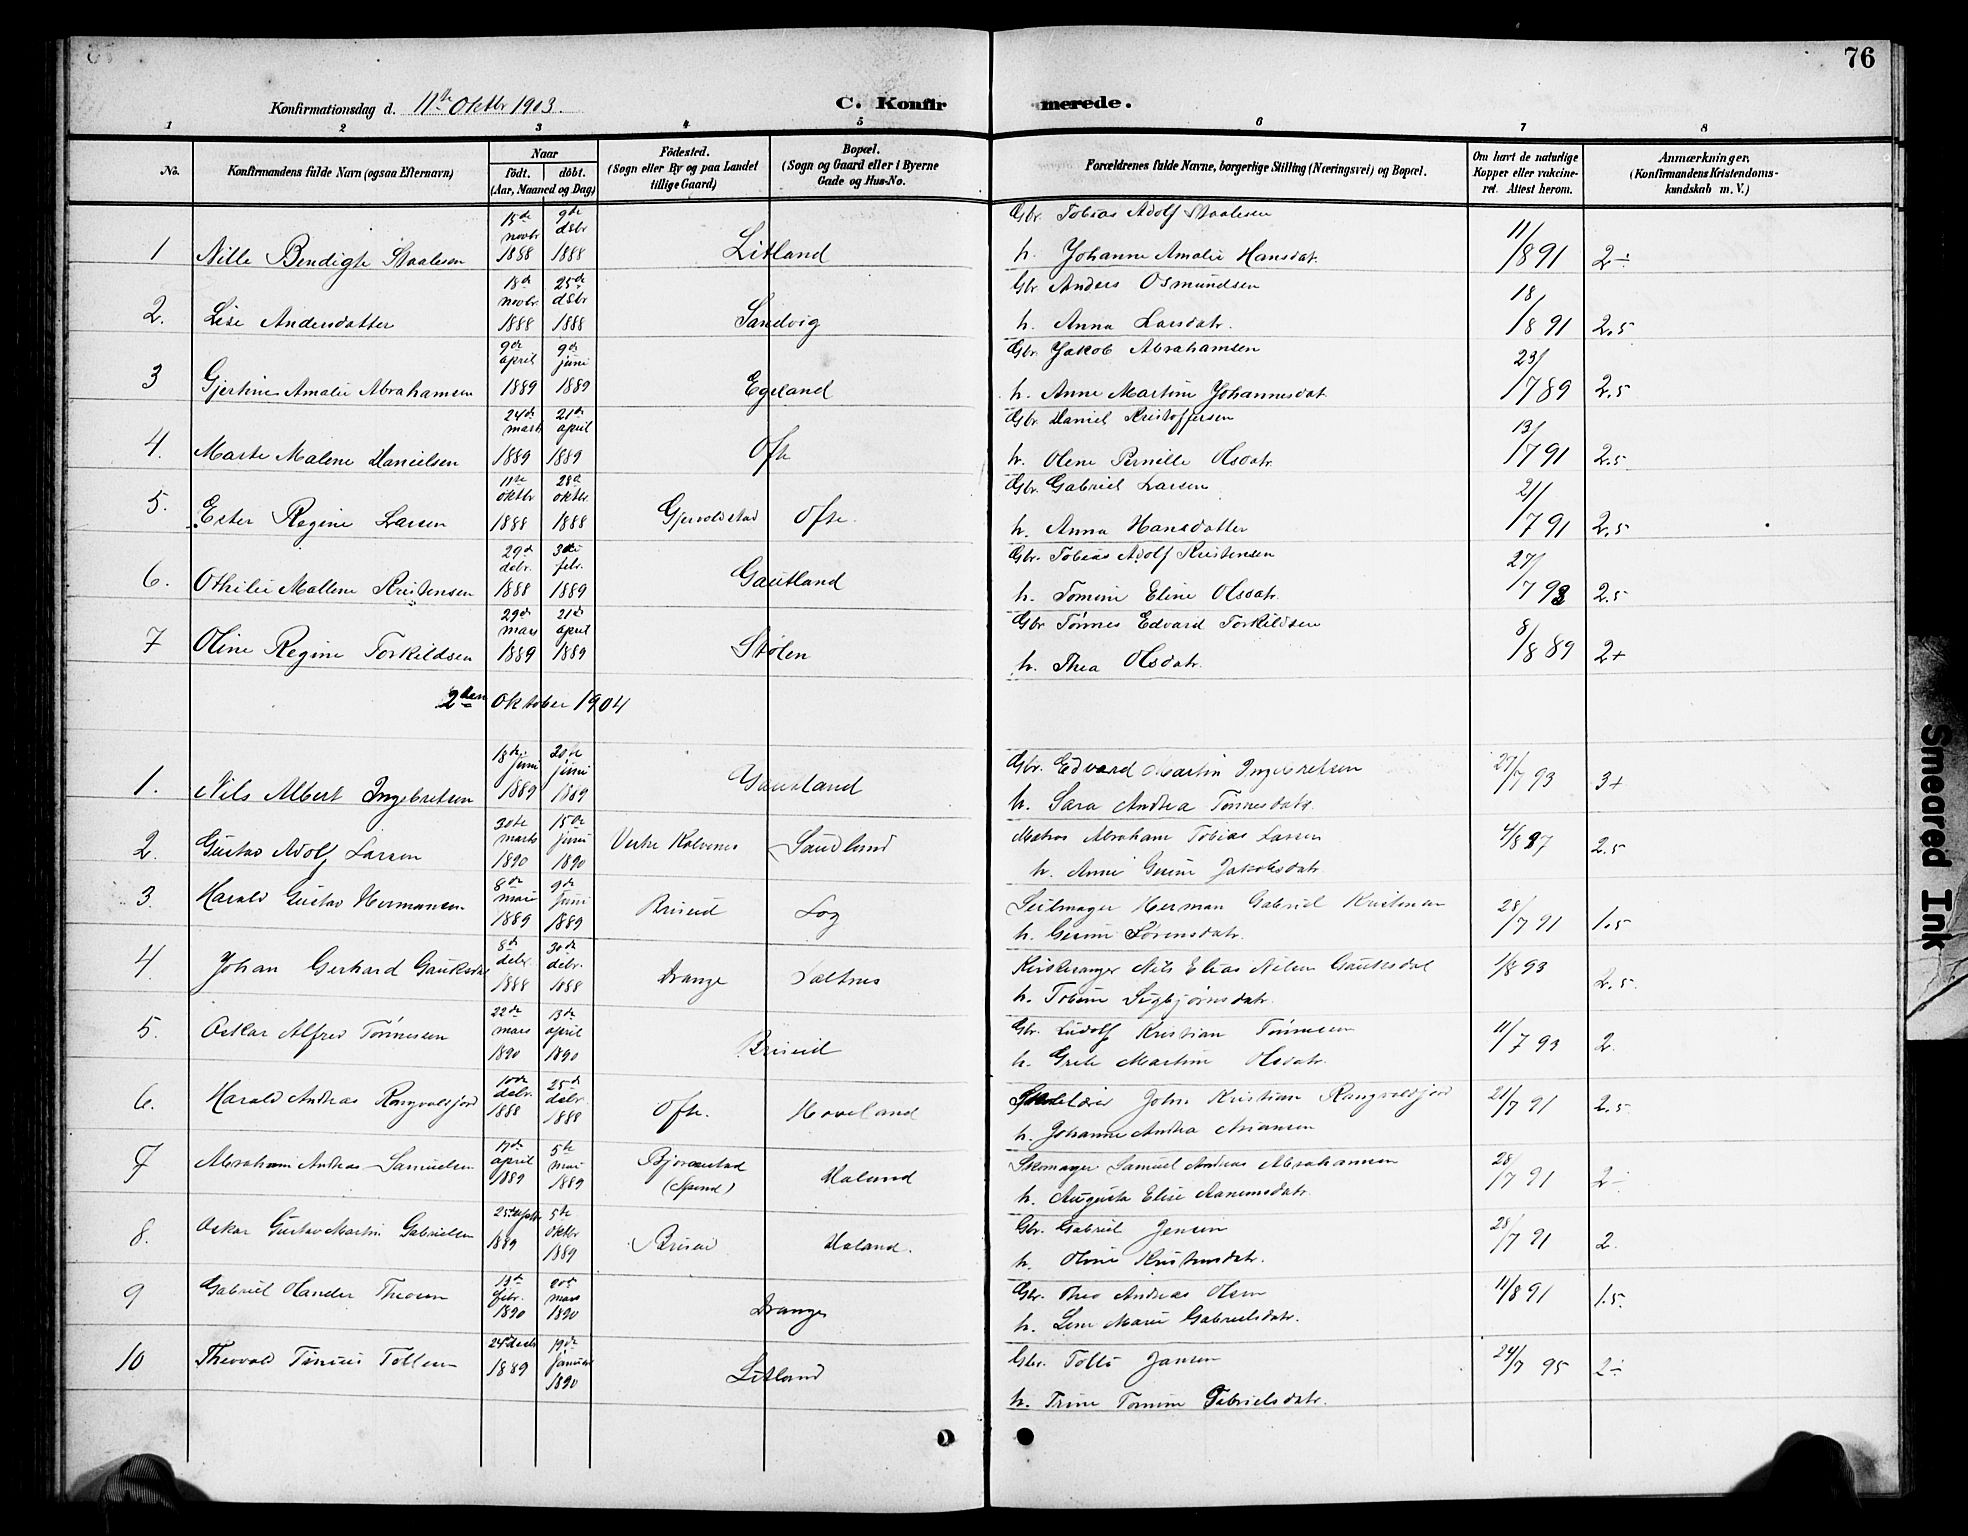 76
Konfirmationsdag d. 11te Oktbr 1903.
C. Konfirmerede.
1 2 3 4 5 6 7 8
No.
Konfirmandens fulde Navn (ogsaa Efternavn)
Naar
födt. döbt.
(Aar, Maaned og Dag)
Födested.
(Sogn eller By og paa Landet
tillige Gaard)
Bopæl.
(Sogn og Gaard eller i Byerne
Gade og Hus-No.
Forældrenes fulde Navne, borgerlige Stilling (Næringsvei) og Bopæl.
Om havt de naturlige
Kopper eller vakcine-
ret. Attest herom.
Anmærkninger,
(Konfirmandens Kristendoms-
kundskab m. V.)
1 Nille Bendigte Staalesen 15de novbr 1888 9de dsbr 1888 Litland Gbr. Tobias Adolf Staalesen 11/8 91 2÷
h. Johanne Amalie Hansdatr.
2. Lise Andersdatter 18de novbr. 1888 25de dsbr 1888 Sandvig Gbr. Anders Osmundsen 18/8 91 2.5
h. Anna Larsdatr.
3 Gjertine Amalie Abrahamsen 9de april 1889 9de juni 1889 Egeland Gbr. Jakob Abrahamsen 23/7 89 2.5
h. Anne Martine Johannesdat
4. Marte Malene Danielsen 24de marts 1889 21de april 1889 Ofte Gbr. Daniel Kristoffersen 13/7 91 2.5
h. Olene Pernille Olsdatr.
5. Ester Regine Larsen 11te oktbr 1888 28de oktbr. 1888 Gjervoldstad Ofte. Gbr. Gabriel Larsen 21/7 91 2.5
h. Anna Hansdatter
6. Othilie Mallene Kristensen 29de dsbr. 1888 3die febr. 1889 Gautland Gbr. Tobias Adolf Kristensen 27/7 93 2.5
h. Tomine Eline Olsdatr.
7 Oline Regine Torkildsen 29de mars 1889 21de april 1889 Stølen Gbr Tønnes Edvard Torkildsen 8/8 89 2+
h. Thea Olsdatr.
2den Oktober 1904
1. Nils Albert Ingebretsen 18de juni 1889 juni 1889 Gausland Gbr. Edvard Martin Ingebretsen 27/7 93 3+
h. Sara Andrea Tønnesdatr.
2. Gustav Adolf Larsen 30te marts 1890 15de juni 1890 Vestre Kalvenes Sandland Matros Abraham Tobias Larsen 4/8 97 2.5
h. Anne Gurine Jakobsdatr.
3. Harald Gustav Hermansen 8de 1889 9de juni 1889 Briseid Log Seilmager Herman Gabriel Kristensen 28/7 91 1.5
h. Gesine Sørensdatr.
4. Johan Gerhard Gauksdal 8de debr. 1888 30de debr. 1888 Drange Saltnes Kirkesanger Nils Elias Nilsen Gauksdal 1/8 93 2.5.
h. Tobine Sigbjørnsdatr.
5. Oskar Alfred Tønnesen 22de mars 1890 13de april 1890 Briseid Gbr. Ludolf Kristian Tønnesen 11/7 93 2.
h. Grete Martine Olsdatr.
6. Harald Andreas Rangvalsjord 10de debr. 1888 25de debr. 1888 Ofte. Hoveland John Kristian Rangvalsjord 21/7 91 2.5.
h. Johanne Andrea
7 Abraham Andreas Samuelsen 17de april 1889 5te mai 1889 Bjørnestad Haland Skomager Samuel Andreas Abrahamsen 28/7 91 2÷
(Spind)
h. Augusta Elise Aanensdatr.
8. Oskar Gustav Martin Gabrielsen 25de 1889 5te oktbr 1889 Briseid Haland. Gbr. Gabriel Jensen 28/7 91 2.
h. Oline Kristensdatr.
9 Gabriel Theosen 13de febr. 1890 mars 1890 Drange Gbr. Theo Andreas Olsen 11/8 91 1.5.
h. Lene Marie Gabrielsdatr.
10 Theovald Tinius Tollesen 24de 1889 19de januar 1890 Litland Gbr. Tolli Jansen 24/7 95 2÷
h. Trine Tomine Gabrielsdatr.
Smeared Ink